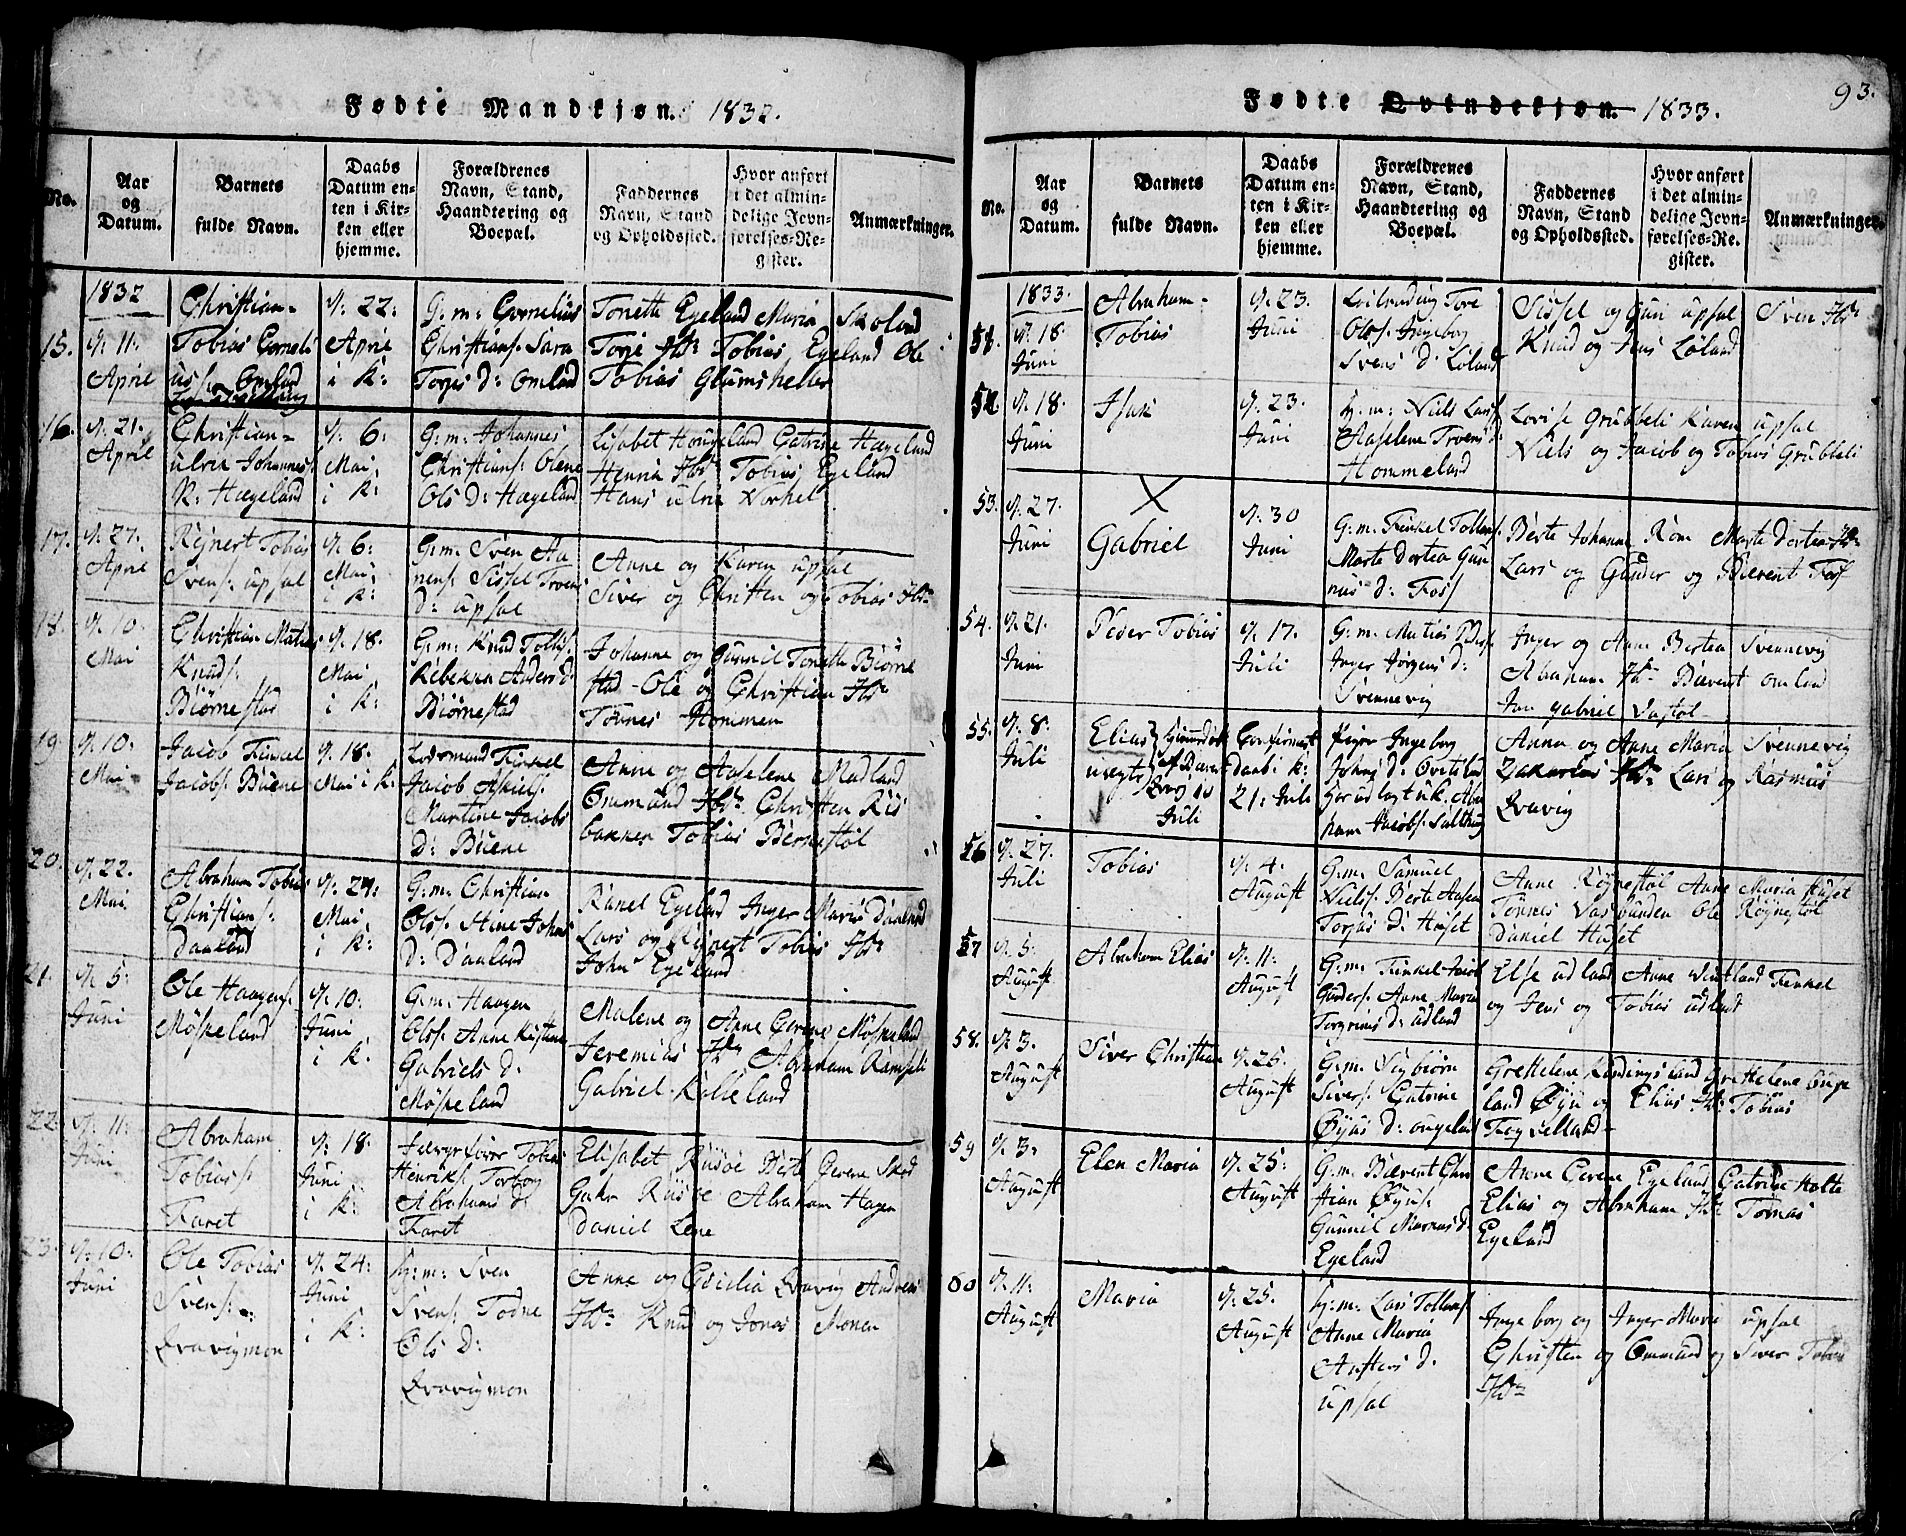 Fødte Mandkjøn. 1832.
No.
Aar
og
Datum.
Barnets
fulde Navn.
Daabs
Datum en-
ten i Kir-
ken eller
hjemme.
Forældrenes
Navn, Stand,
Haandtering og
Boepæl.
Faddernes
Navn, Stand
og Opholdssted.
Hvor anført
i det almin-
delige Jevn-
førelses-Re-
gister.
Anmærkninger.
1832
15. 11. April
Christian-
Tobias Corneli
uss: Omland
22: April i K:
G: m: Cornelius
Christians: Sara
Torjes D: Omland
Tonette Egeland Maria Skoland
Torje Tobias Egeland Ole
Tobias Glumsheller
16. 21. April
Christian-
ulrik Johannes
N: Hægeland
6: Mai i K:
G: m: Johannes
Christians: Olene
Ols D: Hægeland
Lisabet Hougeland Catrine Hageland
Henrik Tobias Egeland
Hans ulrik
17. 27. April
Rejnert Tobias
Svens: upsal
6: Mai i K:
G: m: Sven Aa
nens: Sissel Troens
D: upsal
Anne og Karen upsal
Siver og Christen og Tobias
18. 10. Mai
Christian Matias
Knuds:
Biørnestad
18: Mai i K:
G: m: Knud Tolls:
Rebekka Anders D:
Biørnestad
Johanne og Gunnil Tonette Biørne
stad - Ole og Christian
Tönnes Hommen
19. 10: Mai
Jacob Finkel
Jacobs: Buene
18: Mai i K:
Jacob Askiels:
Martine Jacobs
D: Buene
Anne og Aaselene Madland
Ommund Christen Ris
bakken Tobias Bernestöl
20. 22. Mai
Abraham Tobias
Christians:
Daaland
27: Mai i K:
G: m: Christian
Ols: Stine Johns
D: Daaland
Ranel Egeland Inger Maria Daaland
Lars og Rejnert Tobias
John Egeland
21. 5: Juni
Ole Haagens:
Möskeland
10: Juni i K:
G: m: Haagen
Ols: Anne Kistine
Gabriels D:
Möskeland
Malene og Anne Gerene Möskeland
Jeremias Abraham Ramseli
Gabriel Kolleland
22. 11: Juni
Abraham
Tobias:
Faret
18: Juni i K:
Tobias
Henriks: Torborg
Abrahams D:
Faret
Elisabet Rusöe Berte Gerene Skod
Rusöe Abraham Hagen
Daniel Lene
23. 10: Juni
Ole Tobias
Svens:
Dravigmon
24: Juni i K:
Sven
Svens: Todne
Ols D:
Dravigmon
Anne og Cecilia Dravig Andreas
Knud og Jonas Monen
Fødte Qvindekjøn. 1833.
93.
No.
Aar
og
Datum.
Barnets
fulde Navn.
Daabs
Datum en-
ten i Kir-
ken eller
hjemme.
Forældrenes
Navn, Stand,
Haandtering og
Boepæl.
Faddernes
Navn, Stand
og Opholdssted.
Hvor anført
i det almin-
delige Jevn-
førelses-Re-
gister.
Anmærkninger.
1833.
51. 18. Juni
Abraham-
Tobias
23. Juni
Tore
Ols: Ingeborg
Svens D: Löland
Sissel og Guri upsal Sven
Knud og Jens Löland
52. 18. Juni
Isak
23. Juni
Niels Lars:
Aaselene Troens D:
Hommeland
Lovise Grubbeli Karen upsal
Niels og Jacob og Tobias Grubbeli
53. 27. Juni
X
Gabriel
30 Juni
G: m: Finkel Tollens:
Marte Dortea Gun
nus D: Foss
Berte Johanne Rom Marte Dortea
Lars og Gunder og Bievent Foss
54. 21. Juni
Peder Tobias
17. Juli
G: m: Matias Peders:
Inger Jörgens D:
Svennevig
Inger og Anne Bertea Svennevig
Abraham Bievent Omland
Jan Gabriel Vastöl
55. 8: Juli
Elias
uægte
hiemdöbt
10
Juli
Confirmert
daab i K:
21: Juli
Pigen Ingeborg
Johns D: Qvitsland
har udlagt Abra
ham Jacobs:
Anna og Anne Maria Svennevig
Zakarias Lars og Rasmus
Dravig
56. 27. Juli
Tobias
4. August
G: m: Samuel
Niels: Berte Aasene
Torjus D: Huset
Anne Röjnestöl Anne Maria Huset
Tönnes Vasbunden Ole Röjnestöl
Daniel Huset
57 5. August
Abraham Elias
11: August
G: m: Finkel Jacob
Gunders: Anne Maria
Torgrims D: udland
Else udland Anne Finkel
og Jens og Tobias udland
58. 3. August
Siver Christian
25. August
G: m: Sigbiörn
Sivers: Catrine
Øyus D: ougeland
Grethelene Kandingsland Grethelene ouge
land Øyu og Elias Tobias
59 3: August
Elen Maria
25: August
G: m: Bievent Chri
stian Øyus:
Gunnil Marcus D:
Egeland
Anne Gerene Egeland Catrine Holte
Elias og Abraham Tomas
Egeland
60 11: August
Maria
25: August
Lars Tollens:
Anne Maria
D:
upsal
Ingeborg og Inger Marie upsal
Christen og Ommund og Siver Tobias